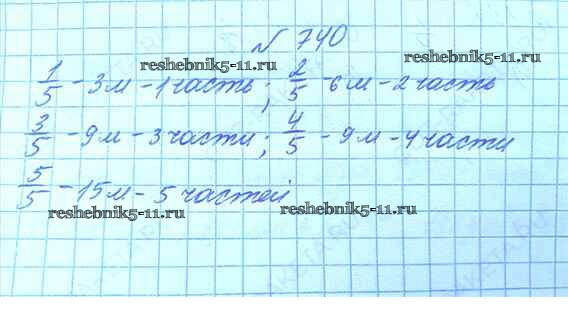 № 740
reshebnik5-11.ru reshebnik5-11.ru
1/5 - 3м - 1 часть; 2/5 - 6м - 2 часть
3/5 - 9м - 3 части; 4/5 - 9м - 4 части
5/5 - 15м - 5 частей
reshebnik5-11.ru reshebnik5-11.ru